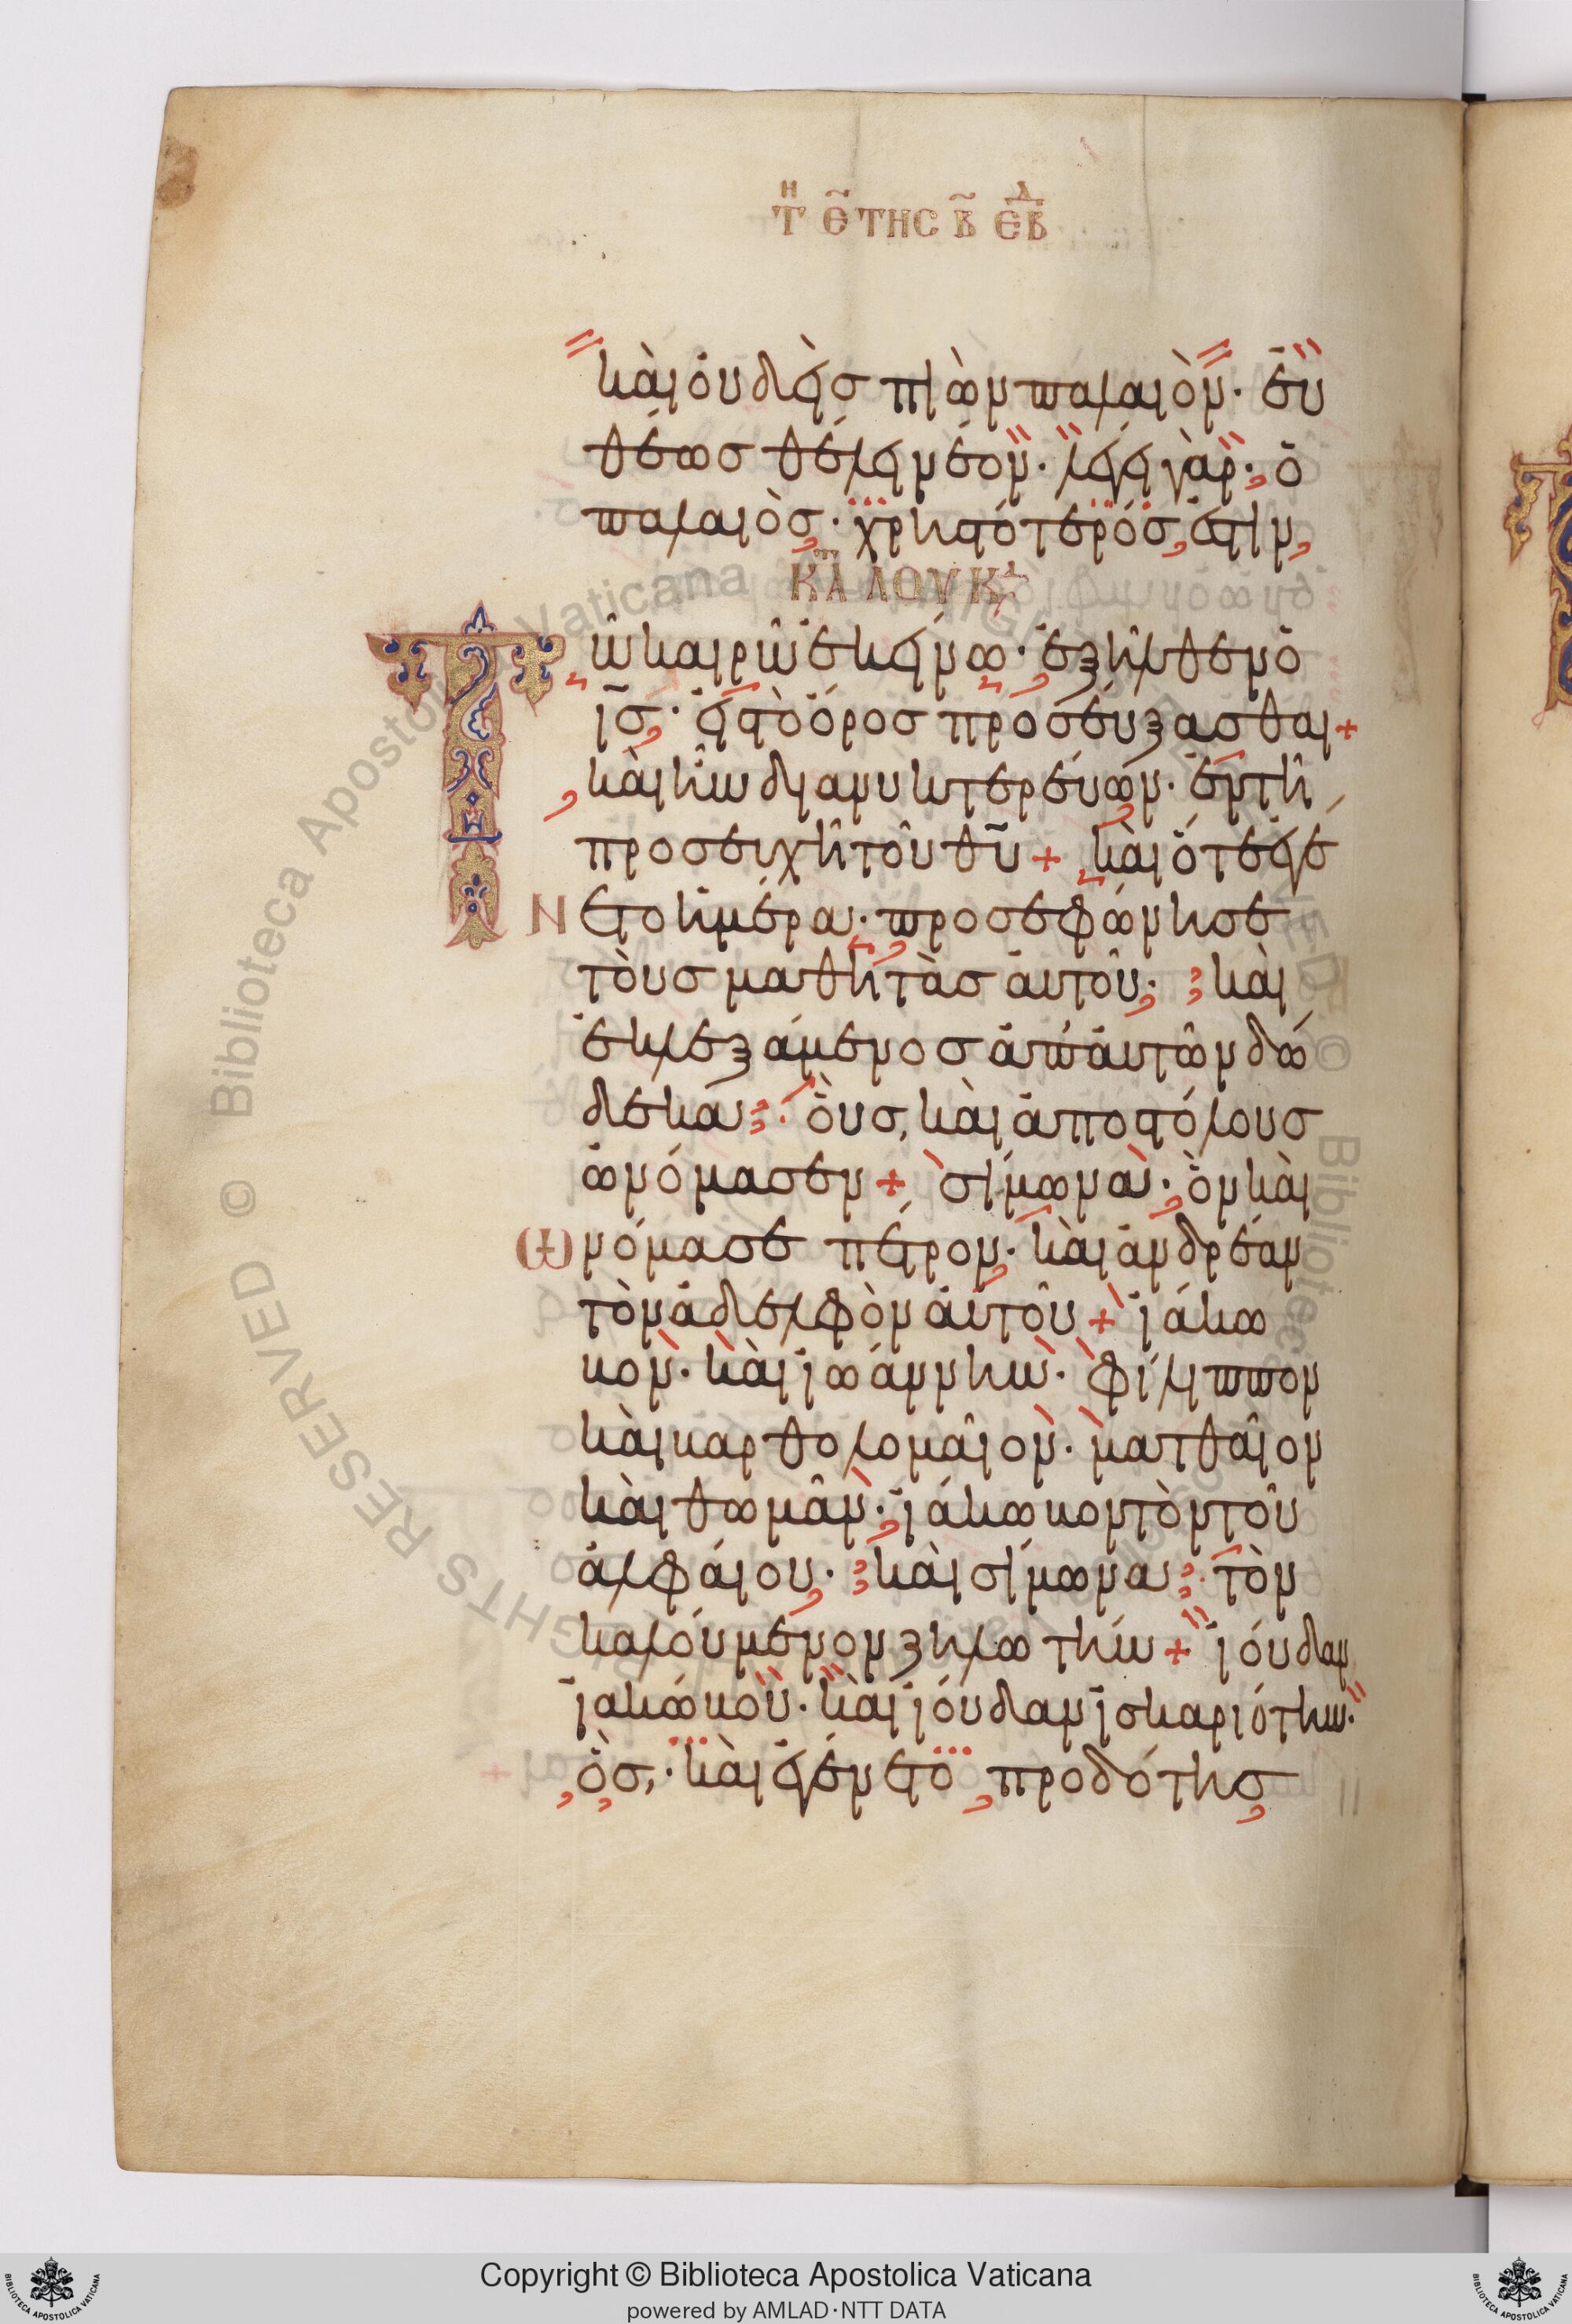 Τῆ ε̃ τῆς β̃ ἑβδ
καὶ οὐδεὶς πιὼν παλαιὸν· εὐ
θέως θέλει νέον· λέγει γὰρ· ὁ
παλαιὸς· χρηστότερός ἐστιν
Κατὰ Λουκ
Τῶ καιρῶ ἐκείνω· ἐξῆλθεν ὁ
ι̅ς̅· εἰς τὸ ὄρος προσεύξασθαι +
καὶ ἦν διανυκτερεύων· ἐν τῆ
προσευχῆ τοῦ θ̅υ̅ + καὶ ὅτε ἐγέ
Νετο ἡμέρα· προσεφώνησε
τοὺς μαθητὰς αὐτοῦ· καὶ
ἐκλεξάμενος ἀπ' αὐτῶν δώ
δεκα· οὓς, καὶ ἀποστόλους
ὠνόμασεν + σίμωνα· ὃν καὶ
Ὠνόμασε πέτρον· καὶ ἀνδρέαν
τὸν ἀδελφὸν αὐτοῦ + ἰάκω
βον· καὶ ἰωάννην· φίλιππον
καὶ βαρθολομαῖον· ματθαῖον
καὶ θωμᾶν· ἰάκωβον τὸν τοῦ
ἀλφαίου· καὶ σίμωνα· τὸν
καλούμενον ζηλωτήν + ἰούδαν
ἰακώβου· καὶ ἰούδαν ἰσκαριότην·
ὃς,· καὶ ἐγένετο προδότης
Copyright © Biblioteca Apostolica Vaticana
powered by AMLAD·NTT DATA